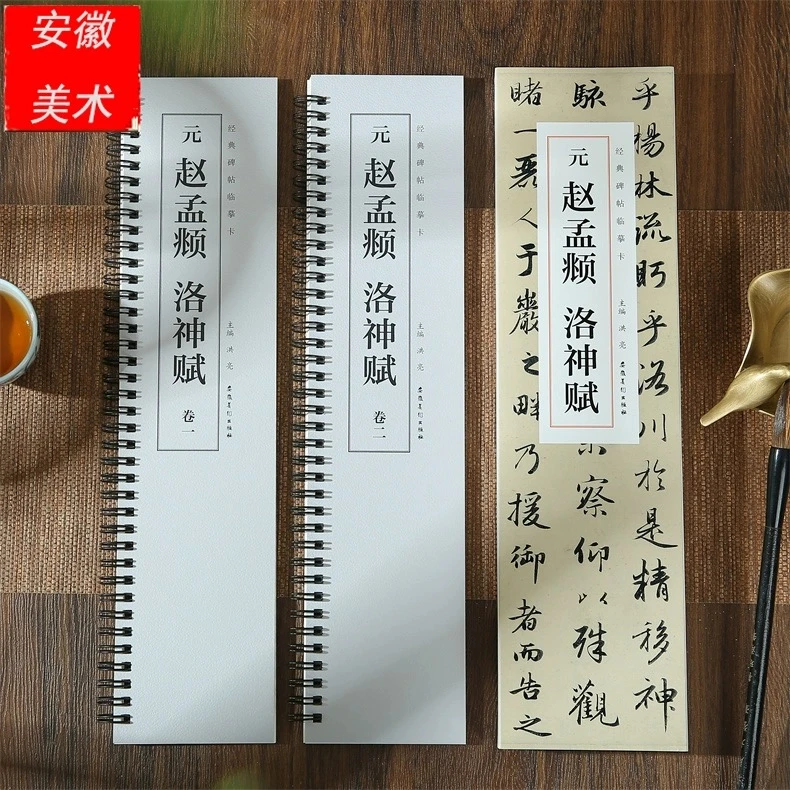 安徽
美术
经典碑帖临摹卡
元 赵孟頫 洛神赋 卷一
主编 洪亮
安徽美术出版社
经典碑帖临摹卡
元 赵孟頫 洛神赋 卷二
主编 洪亮
安徽美术出版社
经典碑帖临摹卡
元 赵孟頫 洛神赋
主编 洪亮
安徽美术出版社
乎楊林流眄乎洛川於是精移神
駭
察仰以殊觀
睹一麗人于巖之畔乃援御者而告之